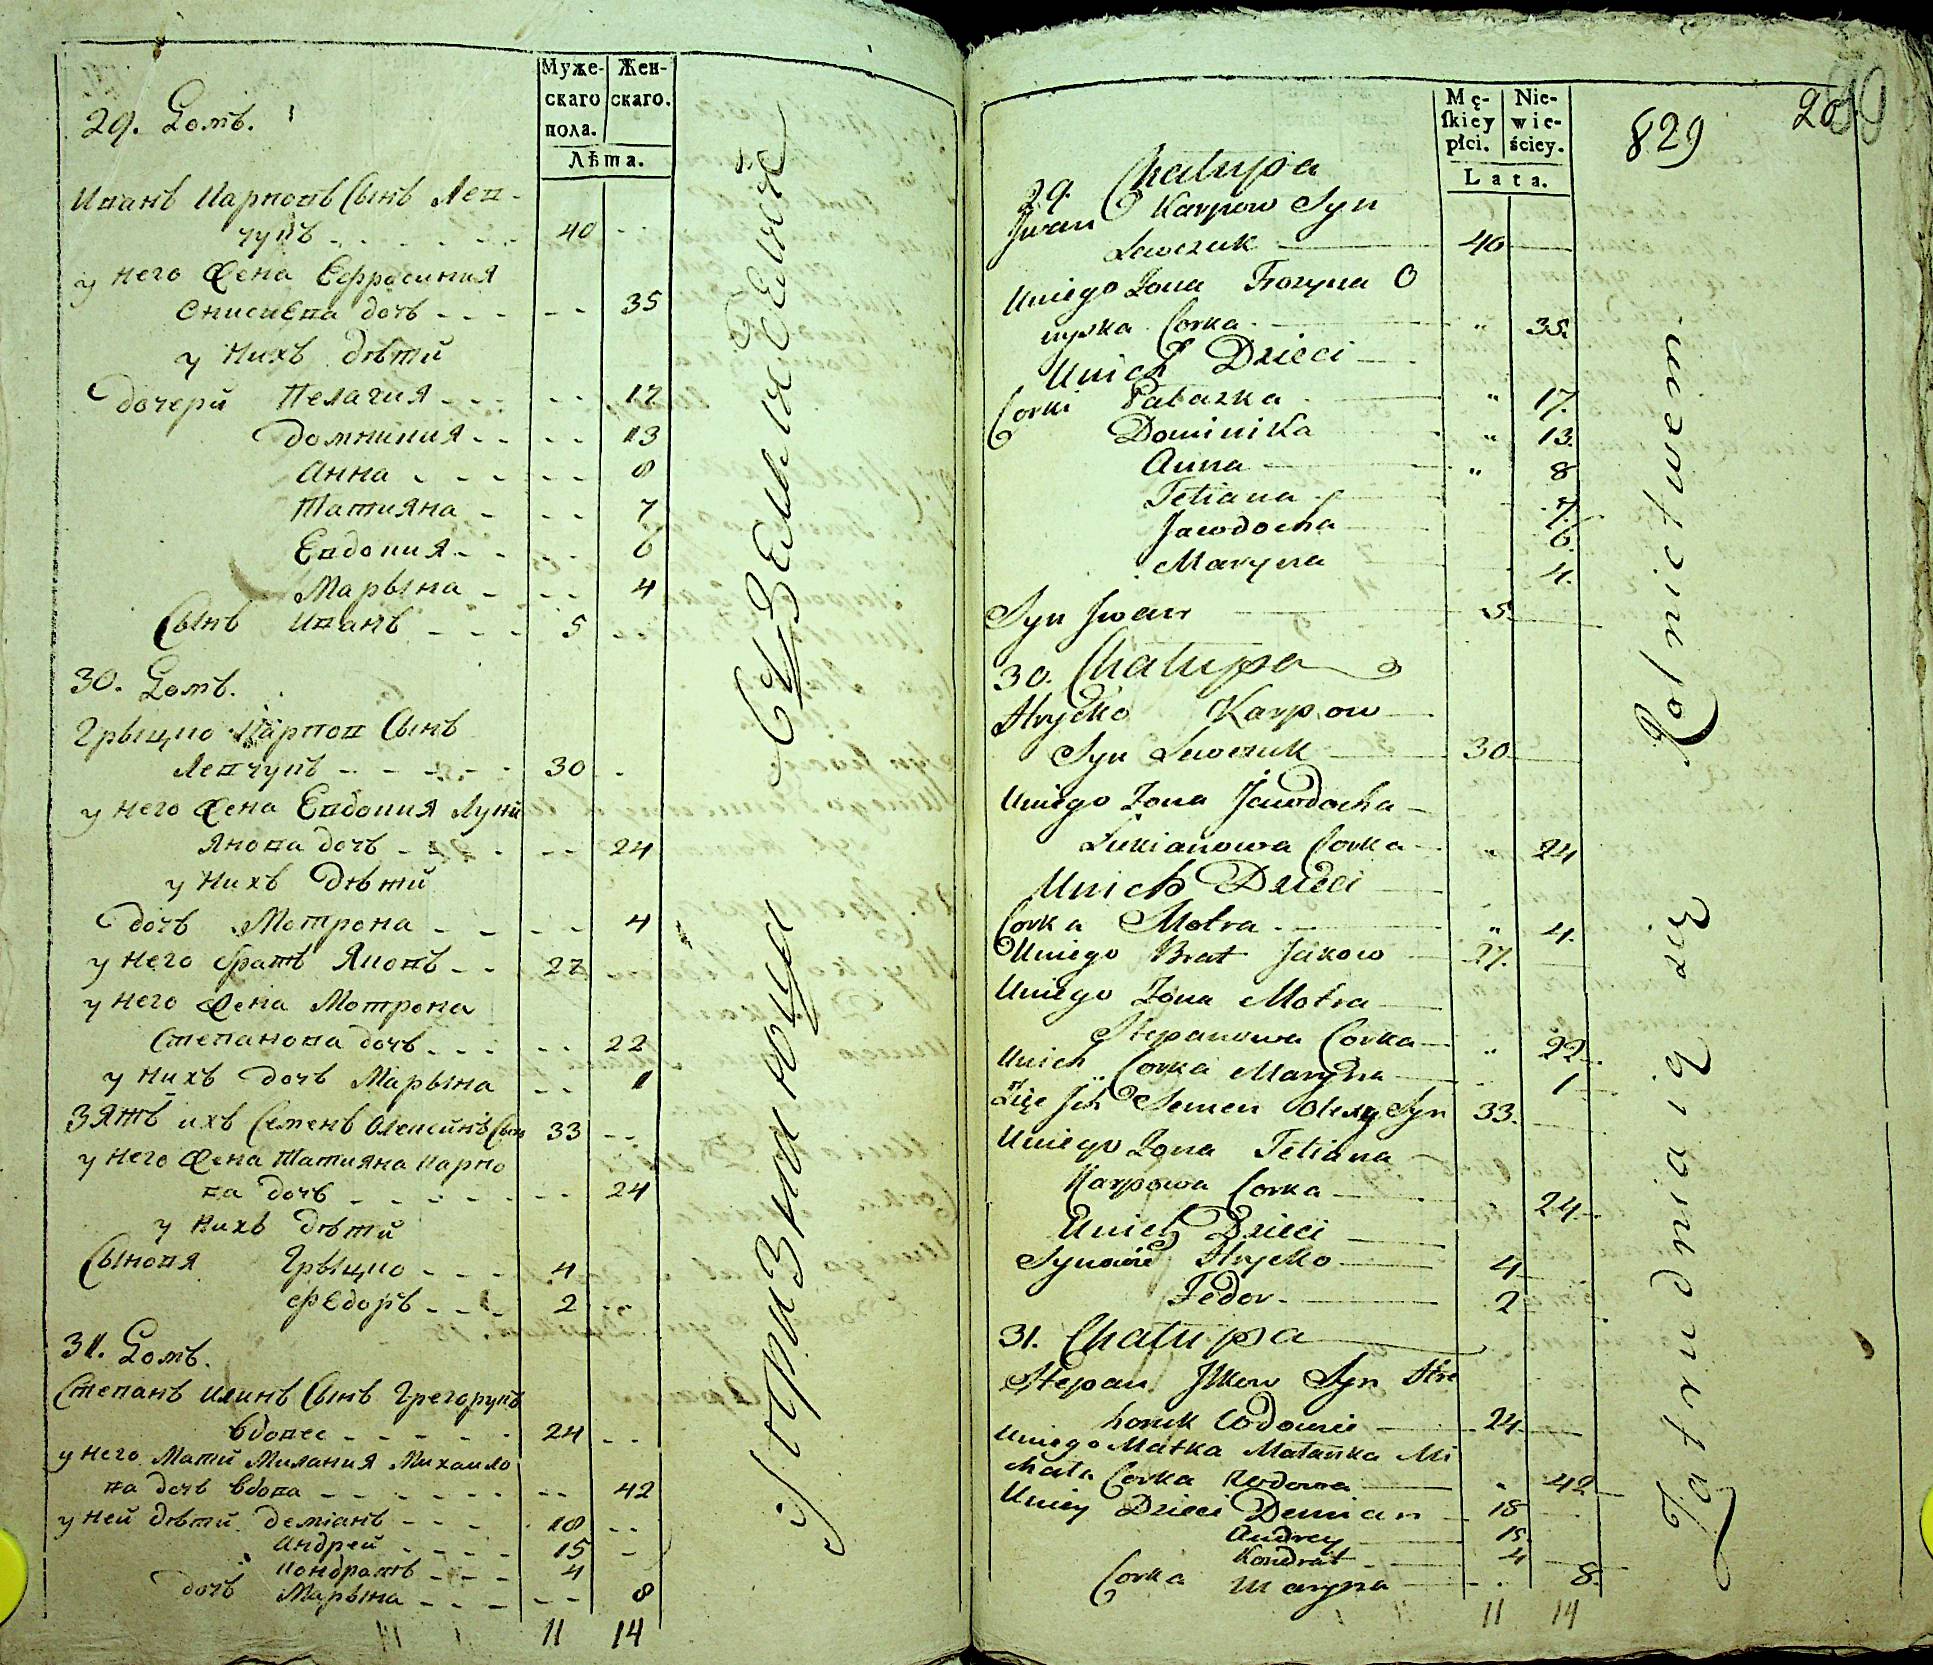 Муже-
скаго
пола.
Жен-
скаго.
Лѣта.
29. Домъ.
Иванъ Карповъ Сынъ Лев-
чукъ - - - - - - 40 - -
у него Жена Ефросиния
дочь - - - - - 35
у нихъ дѣти
дочери Пелагия - - - - - 17
Домникия - - - - 13
Анна - - - - - - 8
Татияна - - - - 7
Евдокия - - - - 6
Марына - - - - 4
Сынъ Иванъ - - - 5 - -
30. Домъ.
Грыцко Карпов Сынъ
Левчукъ - - - - - 30 - -
у него Жена Евдокия Луки
янова дочь - - - - - - 24
у нихъ дѣти
дочь Мотрона - - - - 4
у него братъ Яковъ - - 27 - -
у него Жена Мотрона
Степанова дочь - - - - - 22
у нихъ дочь Марына - - 1
Зять ихъ Семенъ Олексинъ Сын 33 - -
у него Жена Татияна Карпо
ва дочь - - - - - - - 24
у нихъ дѣти
Сыновя Грыцко - - - 4
Федоръ - - - 2 - -
31. Домъ.
Степанъ Илинъ Сынъ Грегорукъ
вдовес - - - - - 24 - -
у него Мати Милания Михаило
ва дочь вдова - - - - - - - - 42
у ней дѣти Демианъ - - - 18 - -
Андрей - - - - 15 -
Кондратъ - - - 4
дочь Марына - - - - - 8
11 14
Признающи
Ся Землиделиемъ
Mę-
skiey
płci.
Nie-
wie-
ściey.
Lata.
829
20
29. Chałupa
Jwan Karpow Syn
Lewczuk 40
Uniego Zona Frozyna O
nyska Corka " 35.
Unich Dzieci
Corki Pałazka " 17.
Dominika " 13.
Anna " 8
Tetiana 7.
Jawdocha 6.
Maryna 4.
Syn Jwan 5.
30. Chałupa
Hrycko Karpow
Syn Lewczuk 30
Uniego Zona Jawdocha
Łukianowa Corka " 24
Unich Dzieci
Corka Motra " 4.
Uniego Brat Jakow 27.
Uniego Zona Motra
Stepanowa Corka " 22
Unich Corka Maryna 1
Zięc Jch Semen Olexy Syn 33.
Uniego Zona Tetiana
Karpowa Corka 24
Unich Dzieci
Synowie Hrycko 4
Fedor 2
31. Chałupa
Stepan Jlkow Syn Hre
horuk Wdowie 24
Uniego Matka Małanka Mi
chała Corka Wdowa " 42
Uniey Dzieci Demian 18
Andrey 15.
Kondrat 4
Corka Maryna 8.
11 14
Zatrudniaią się Rolnictwem.